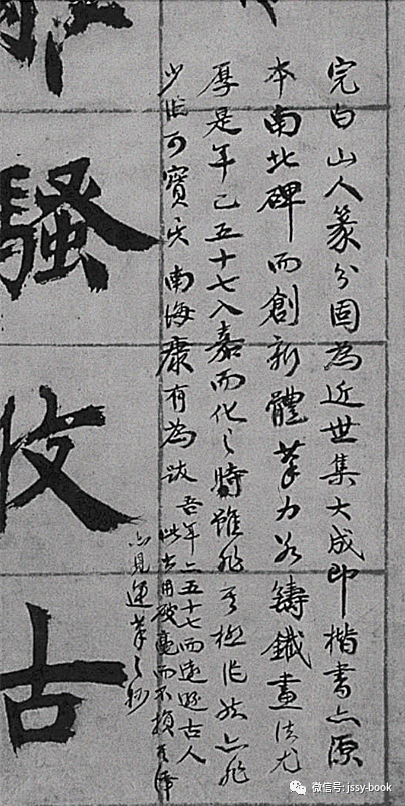 完白山人篆分固為近世集大成即楷書亦源
本南北碑而創新體筆力若鑄鐵畫法尤
厚是年已五十七入嘉而化之時雖非其極作然亦非
少作可寶矣南海康有為跋
吾年亦五十七而遠遜古人
此書用破毫而不損其
亦見運筆之妙
騷收古
微信号: jssy-book